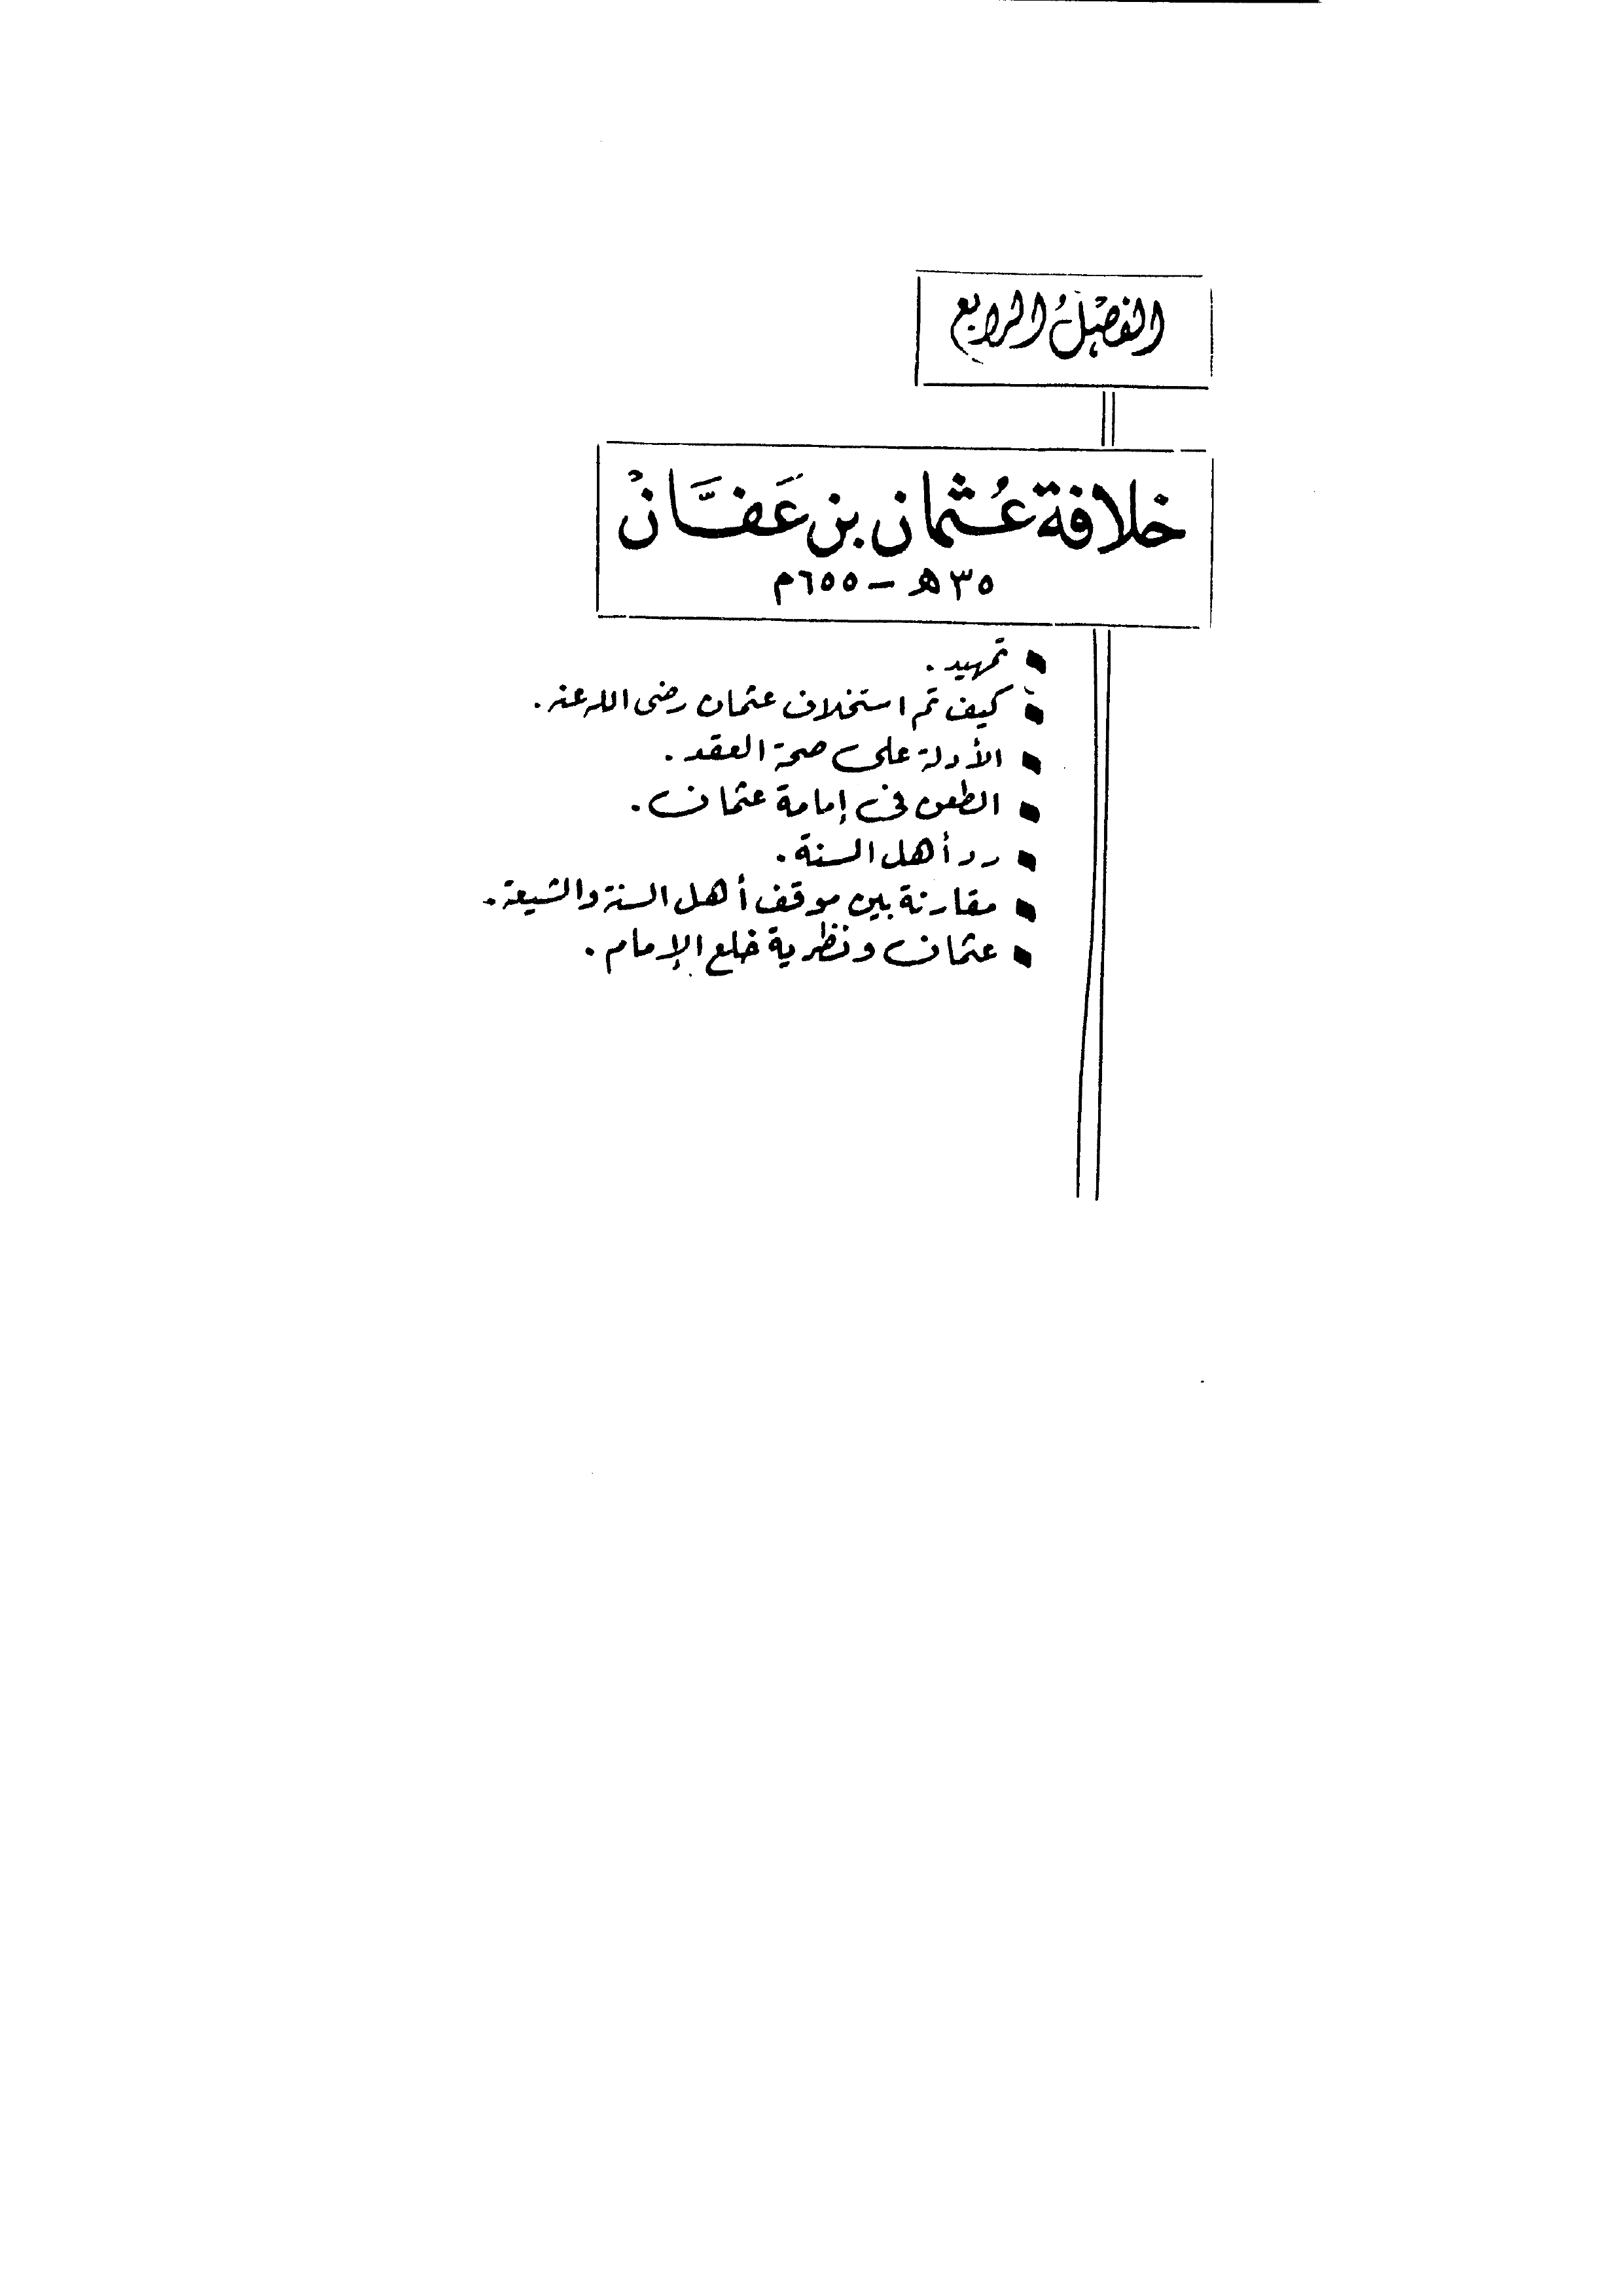 الفصل الرابع
خلافة عُثمان بن عَفَّانْ
٣٥ هـ - ٦٥٥ م
▪ تمهيد.
▪ كيف تم استخلاف عثمان رضى الله عنه.
▪ الأدلة على صحة العقد.
▪ الطعن فى إمامة عثمان.
▪ رد أهل السنة.
▪ مقارنة بين موقف أهل السنة والشيعة.
▪ عثمان ونظرية خلع الإمام.